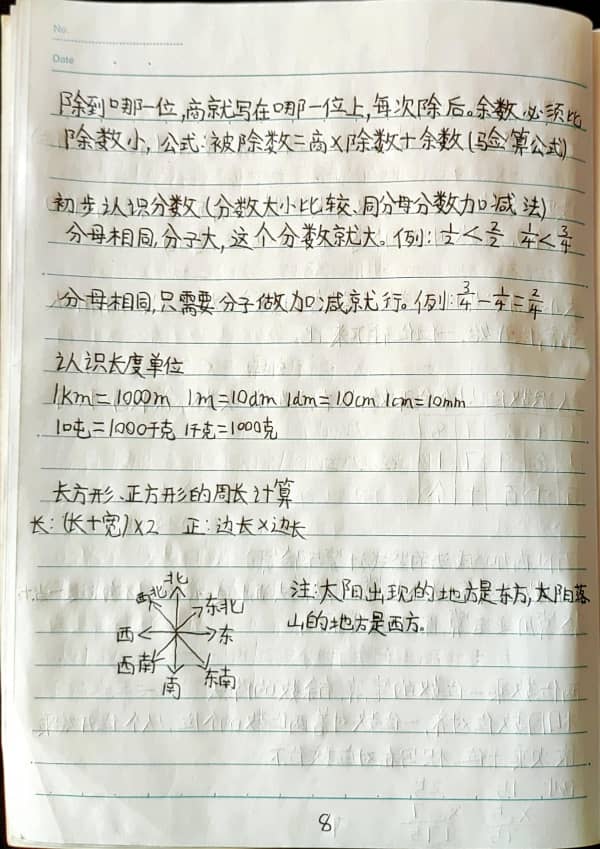 No.
Date
除到哪一位,商就写在哪一位上,每次除后。余数必须比
除数小,公式:被除数=商×除数+余数(验算公式)
初步认识分数(分数大小比较、同分母分数加减法)
分母相同,分子大,这个分数就大。例:1/2<2/2 1/4<3/4
分母相同,只需要分子做加减就行。例:3/4-1/4=2/4
认识长度单位
1km=1000m 1m=10dm 1dm=10cm 1cm=10mm
10吨=1000千克 1千克=1000克
长方形、正方形的周长计算
长:(长+宽)×2 正:边长×边长
北
西北 东北
西 东
西南 东南
南
注:太阳出现的地方是东方,太阳落
山的地方是西方。
8